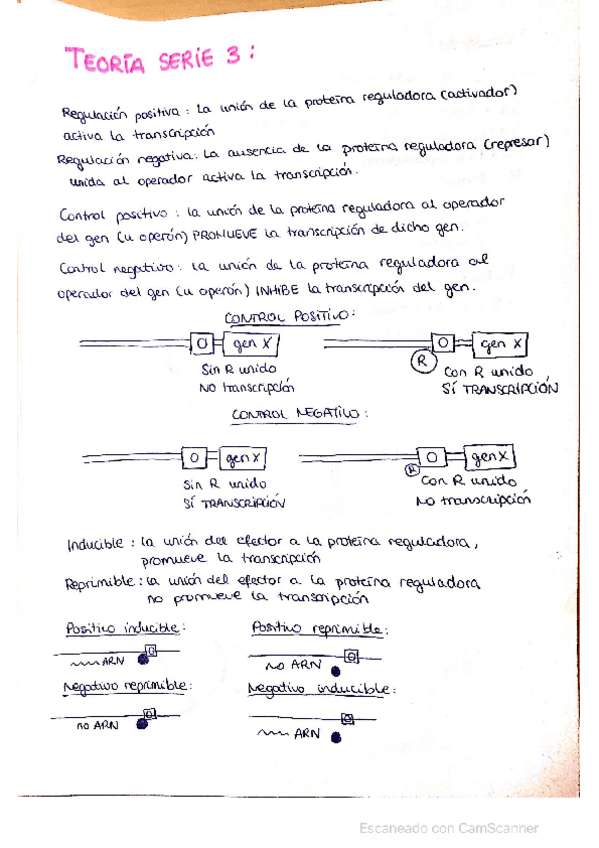 TEORÍA SERIE 3:
Regulación positiva: La unión de la proteína reguladora (activador)
activa la transcripción
Regulación negativa: La ausencia de la proteína reguladora (represor)
unida al operador activa la transcripción.
Control positivo: la unión de la proteína reguladora al operador
del gen (u operón) PROMUEVE la transcripción de dicho gen.
Control negativo: la unión de la proteína reguladora al
operador del gen (u operón) INHIBE la transcripción del gen.
CONTROL POSITIVO:
O gen X O gen X
R
Sin R unido Con R unido
NO transcripción SÍ TRANSCRIPCIÓN
CONTROL NEGATIVO:
O gen X O gen X
R
Sin R unido Con R unido
SÍ TRANSCRIPCIÓN NO transcripción
Inducible: la unión del efector a la proteína reguladora,
promueve la transcripción
Reprimible: la unión del efector a la proteína reguladora
no promueve la transcripción
Positivo inducible: Positivo reprimible:
O O
ARN NO ARN
Negativo reprimible: Negativo inducible:
O O
no ARN ARN
Escaneado con CamScanner